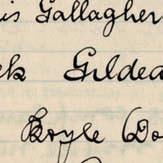 is Gallagher
ek Gildea
Boyle (Do